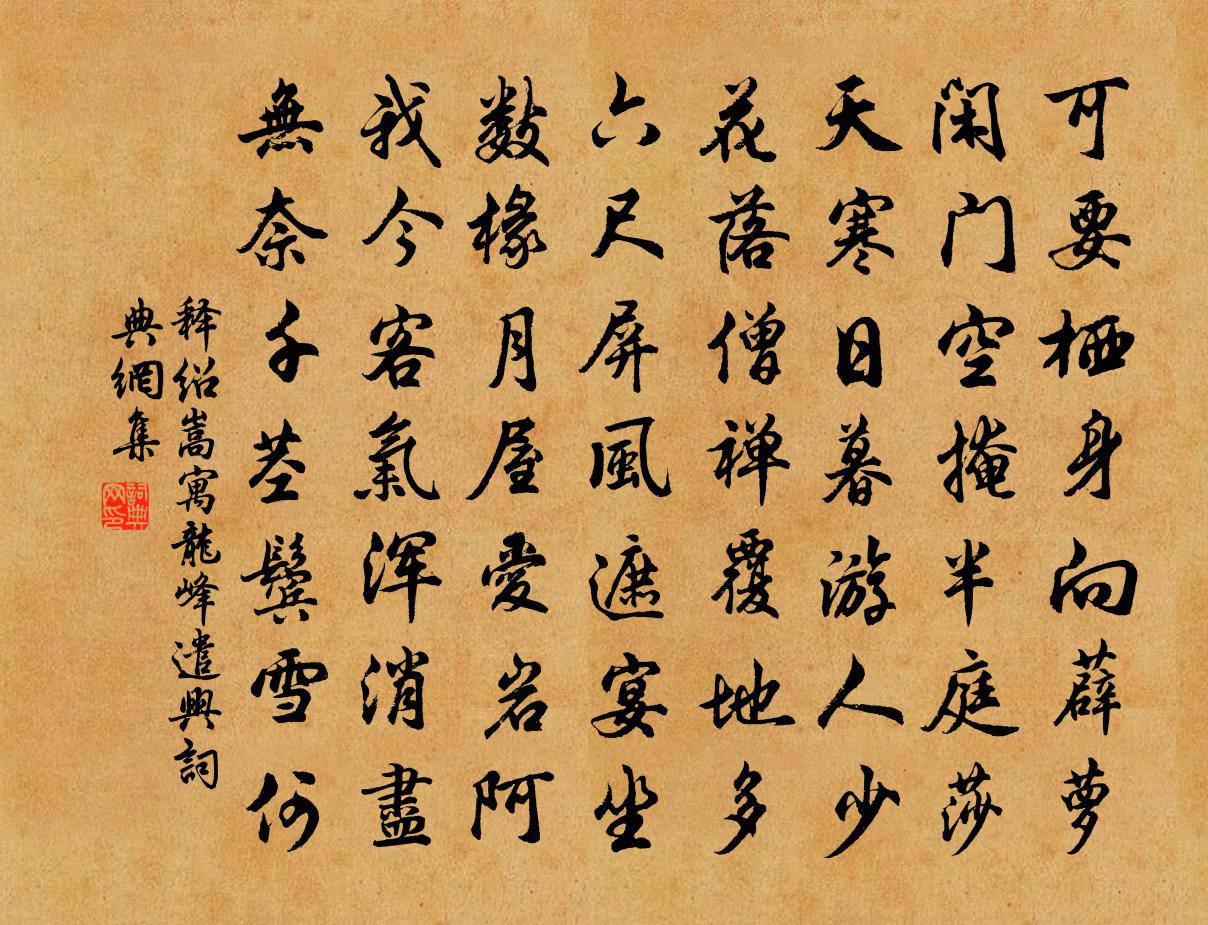 可要栖身向薜萝
闲门空掩半庭莎
天寒日暮游人少
花落僧禅覆地多
六尺屏風遮宴坐
数椽月屋愛岩阿
我今客氣浑消盡
無奈千茎鬓雪何
释绍嵩寓龍峰遣興詞
典網集
詞典
网印